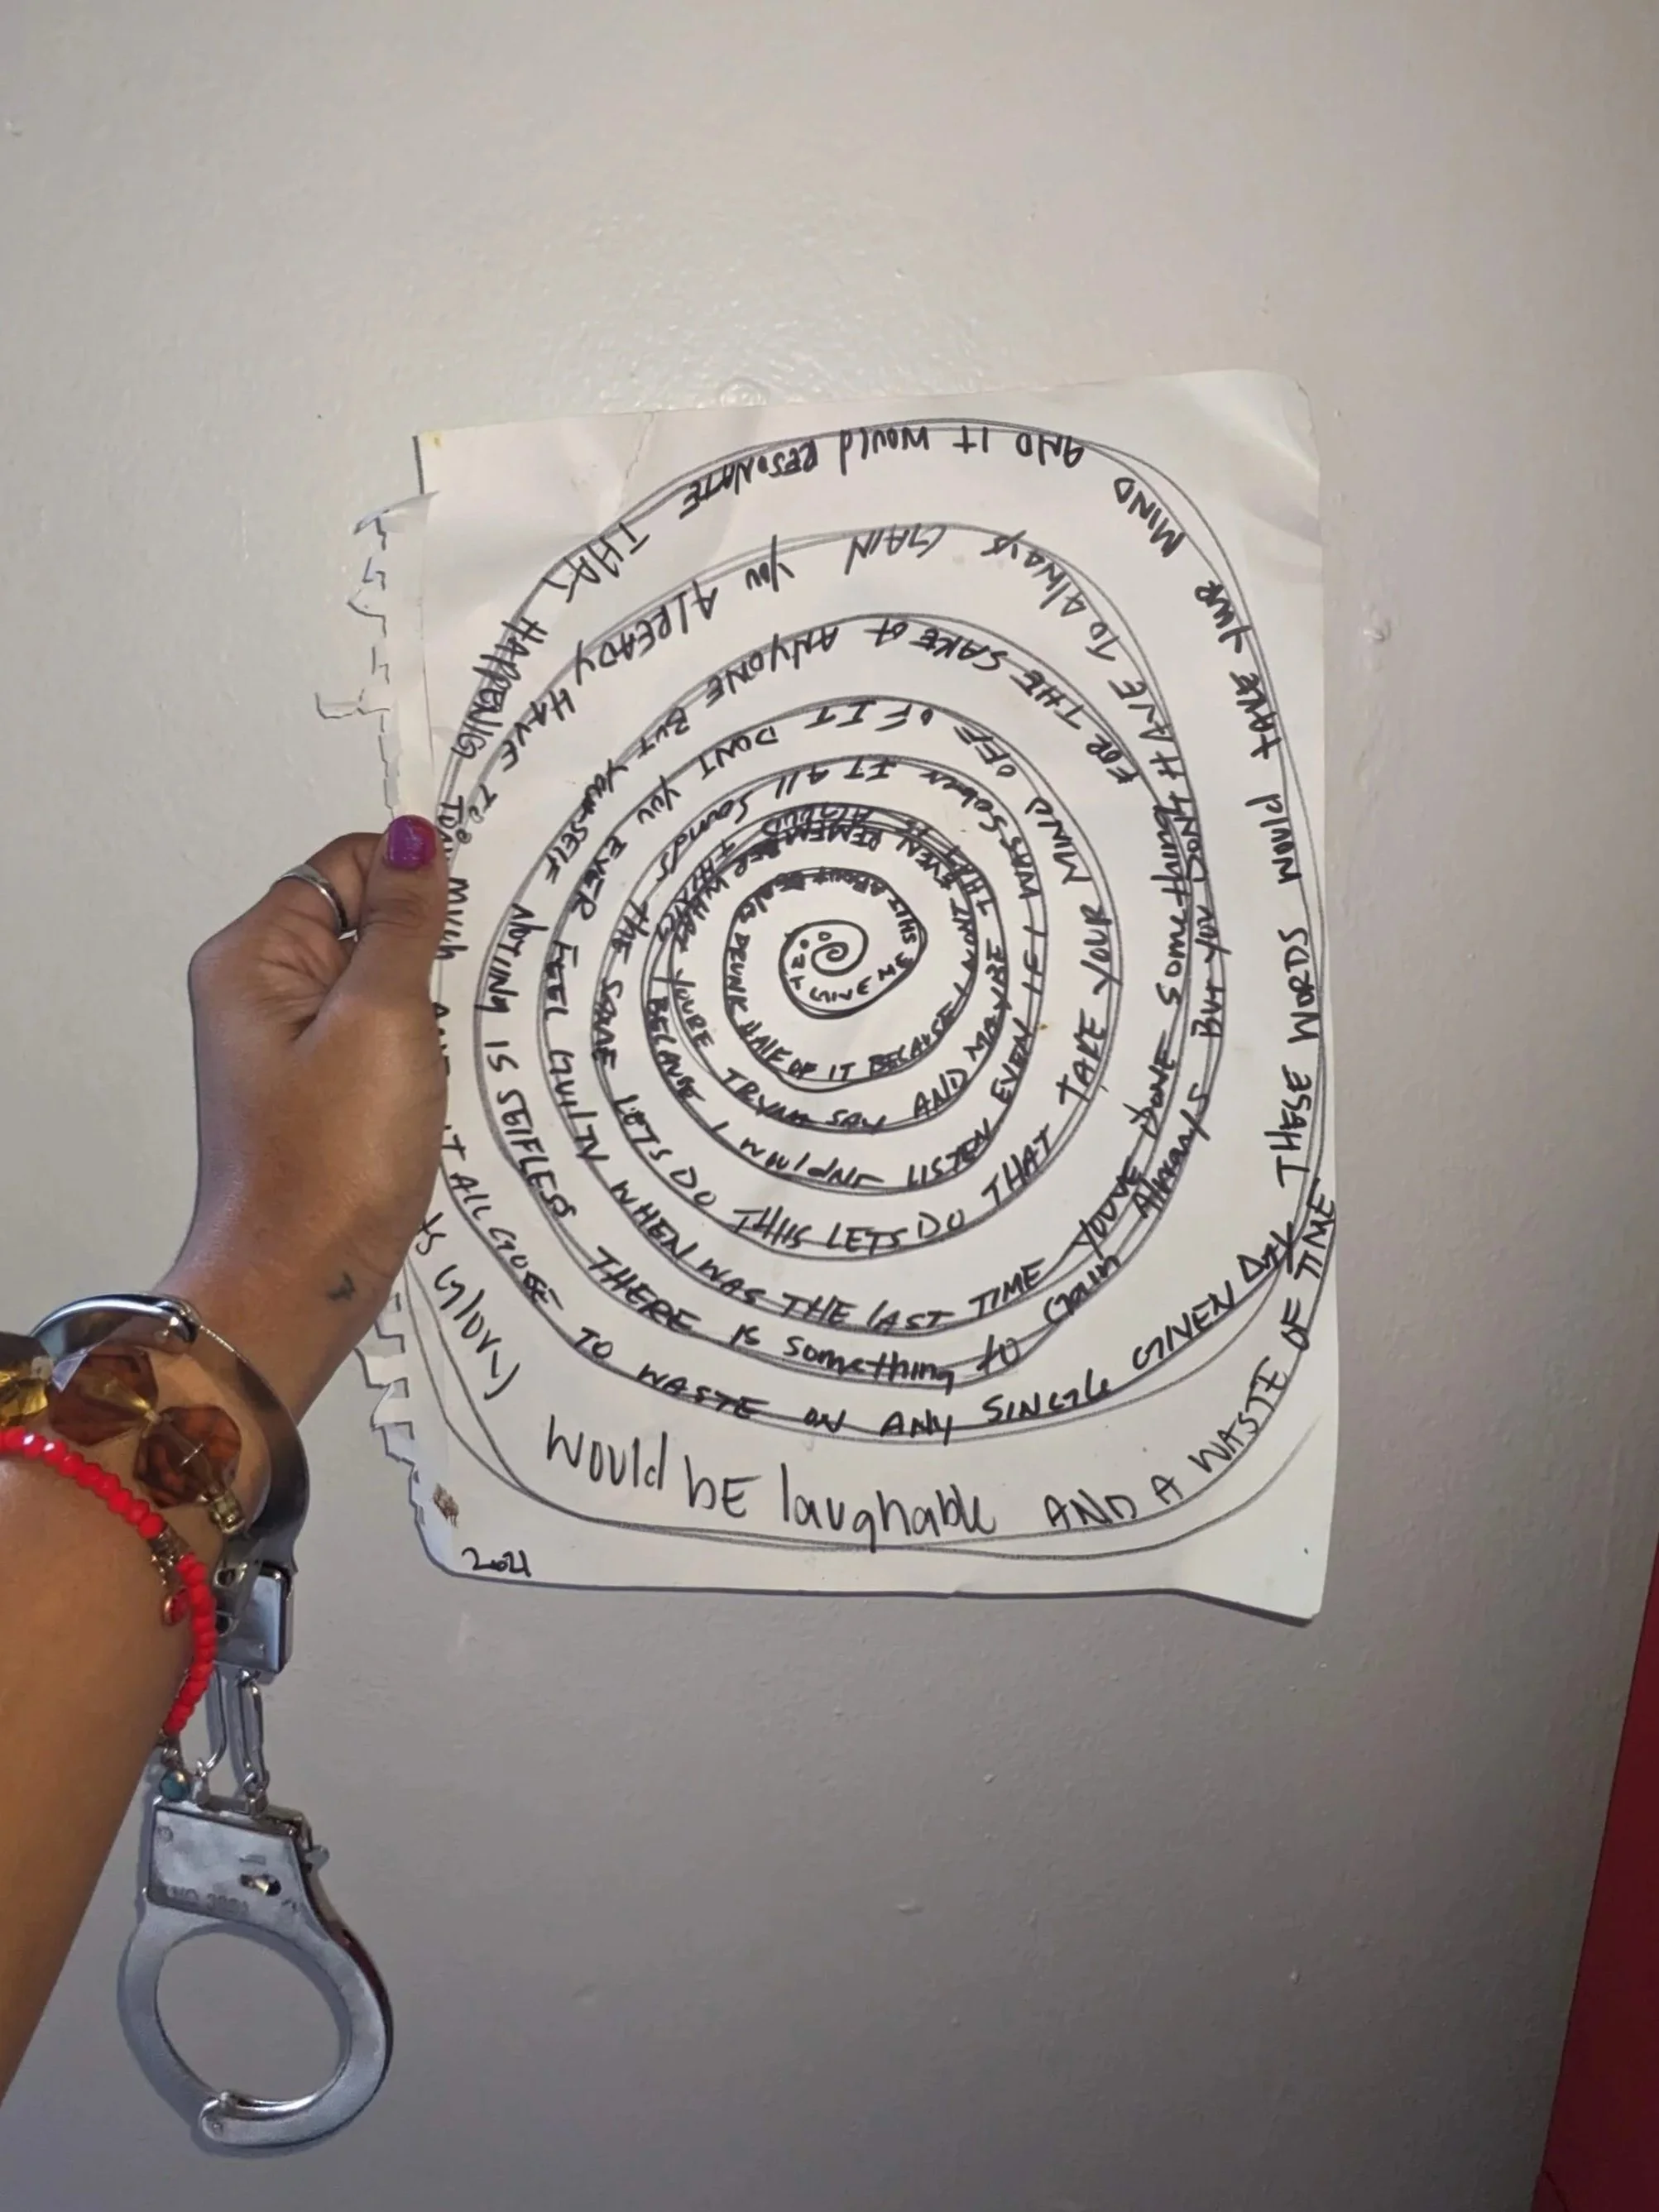 GIVE ME SHIT ABOUT BEING DRUNK HALF OF IT BECAUSE I WONT EVEN REMEMBER WHAT YOURE TRYNA SAY AND MAYBE THATS
BECAUSE I WOULDNT LISTEN EVEN IF I WAS SOBER IT All Sounds THE SAME
LETS DO THIS LETS DO THAT TAKE YOUR MIND OFF OF IT DONT YOU EVER FEEL GUILTY
WHEN WAS THE lAST TIME YOUVE DONE Something FOR THE SAKE OF ANYONE BUT YOURSELF
NOTHING IS SElFLESS THERE IS Something to Gain Always BUT YOU DONT HAVE TO AlWAYS GAIN YOU AlREADY HAVE
IT ALL GOES TO WASTE ON ANY SINGLE GIVEN DAY
THESE WORDS Would TAKE YOUR MIND AND IT WOUld RESONATE THAT HAPPENING
GlORY WOUld bE laughable AND A WASTE OF TIME
2021